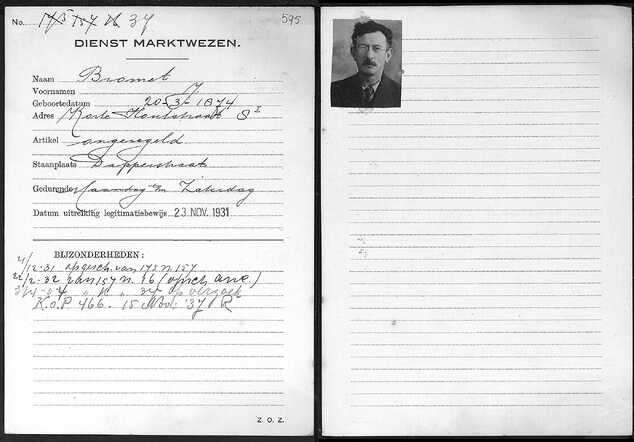 No. 175 157 16 37
595
DIENST MARKTWEZEN.
Naam Bromet
Voornamen J.
Geboortedatum 20-3-1874
Adres Korte Houtstraat 8 I
Artikel ongeregeld
Staanplaats Dapperstraat
Gedurende Maandag t/m Zaterdag
Datum uitreiking legitimatiebewijs 23 NOV. 1931
BIJZONDERHEDEN:
/12-31 opgesch. van 175 n. 157
22/2-32 van 157 n. 16 (opsch. anc.)
" 16 " 37 op verzoek
K.o.P 466. 15 Nov: '37 R
Z. O. Z.